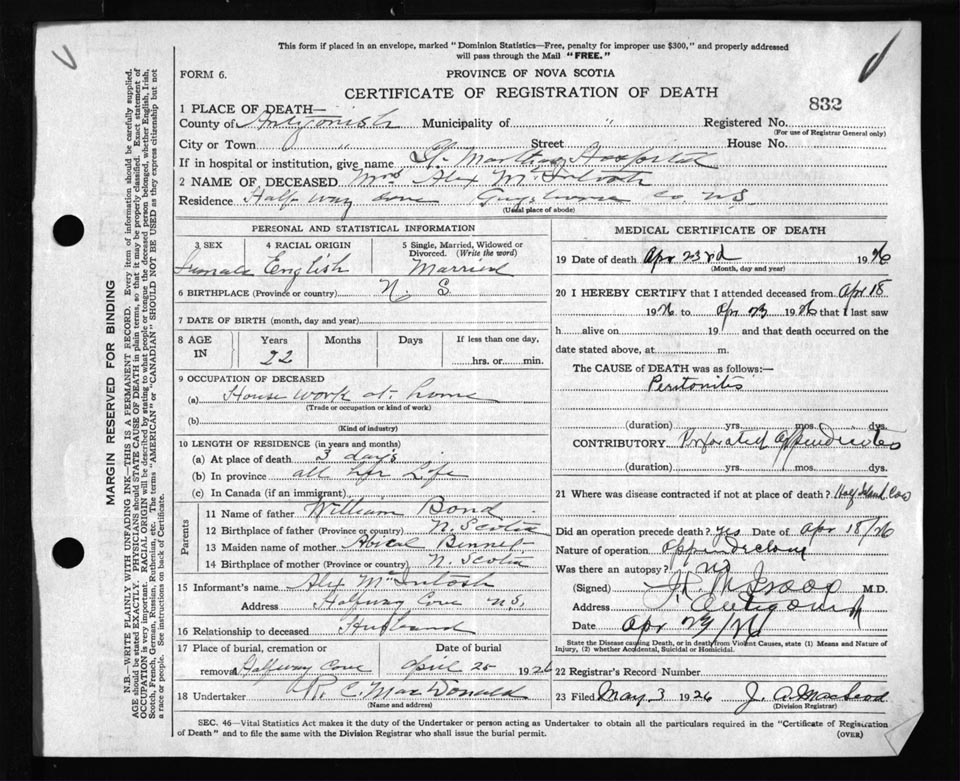 This form if placed in an envelope, marked "Dominion Statistics—Free, penalty for improper use $300," and properly addressed
will pass through the Mail "FREE."
FORM 6.
PROVINCE OF NOVA SCOTIA
CERTIFICATE OF REGISTRATION OF DEATH
832
1 PLACE OF DEATH—
County of Antigonish Municipality of " Registered No.
(For use of Registrar General only)
City or Town " Street House No.
If in hospital or institution, give name St. Marthas Hospital
2 NAME OF DECEASED Mrs Alex McIntosh
Residence Half way cove Guysboro Co NS
(Usual place of abode)
PERSONAL AND STATISTICAL INFORMATION
3 SEX 4 RACIAL ORIGIN 5 Single, Married, Widowed or Divorced. (Write the word)
Female English Married
6 BIRTHPLACE (Province or country) N. S
7 DATE OF BIRTH (month, day and year)
8 AGE IN Years Months Days If less than one day,
22 hrs. or min.
9 OCCUPATION OF DECEASED
(a) House work at home
(Trade or occupation or kind of work)
(b)
(Kind of industry)
10 LENGTH OF RESIDENCE (in years and months)
(a) At place of death 3 days
(b) In province all her Life
(c) In Canada (if an immigrant)
Parents
11 Name of father William Bond
12 Birthplace of father (Province or country) N. Scotia
13 Maiden name of mother Bennet
14 Birthplace of mother (Province or country) N. Scotia
15 Informant's name Alex McIntosh
Address Halfway Cove NS,
16 Relationship to deceased Husband
17 Place of burial, cremation or
removal Halfway Cove April 25 1926
18 Undertaker R. C. MacDonald
(Name and address)
MEDICAL CERTIFICATE OF DEATH
19 Date of death Apr 23rd 1926
(Month, day and year)
20 I HEREBY CERTIFY that I attended deceased from Apr 18
1926 to Apr 23 1926 that I last saw
h alive on 19 and that death occurred on
date stated above, at m.
The CAUSE of DEATH was as follows:—
Peritonitis
(duration) yrs. mos. dys.
CONTRIBUTORY Perforated Appendicitis
(duration) yrs. mos. dys.
21 Where was disease contracted if not at place of death? Half Island Cove
Did an operation precede death? Yes Date of Apr 18/26
Nature of operation Appendectomy
Was there an autopsy? no
(Signed) M.D.
Address Antigonish
Date Apr 29/26
State the Disease causing Death, or in death from Violent Causes, state (1) Means and Nature of Injury, (2) whether Accidental, Suicidal or Homicidal.
22 Registrar's Record Number
23 Filed May 3 1926 J. A. MacLeod
(Division Registrar)
SEC. 46—Vital Statistics Act makes it the duty of the Undertaker or person acting as Undertaker to obtain all the particulars required in the "Certificate of Registration
of Death" and to file the same with the Division Registrar who shall issue the burial permit.
(OVER)
MARGIN RESERVED FOR BINDING
N.B.—WRITE PLAINLY WITH UNFADING INK—THIS IS A PERMANENT RECORD. Every item of information should be carefully supplied.
AGE should be stated EXACTLY. PHYSICIANS should STATE CAUSE OF DEATH in plain terms, so that it may be properly classified. Exact statement of
OCCUPATION is very important. RACIAL ORIGIN will be described by stating to what people or tongue the deceased person belonged, whether English, Irish,
Scotch, French, German, Russian, Ruthenian, etc. The terms "AMERICAN" or "CANADIAN" SHOULD NOT BE USED as they express citizenship but not
a race or people. See instructions on back of Certificate.